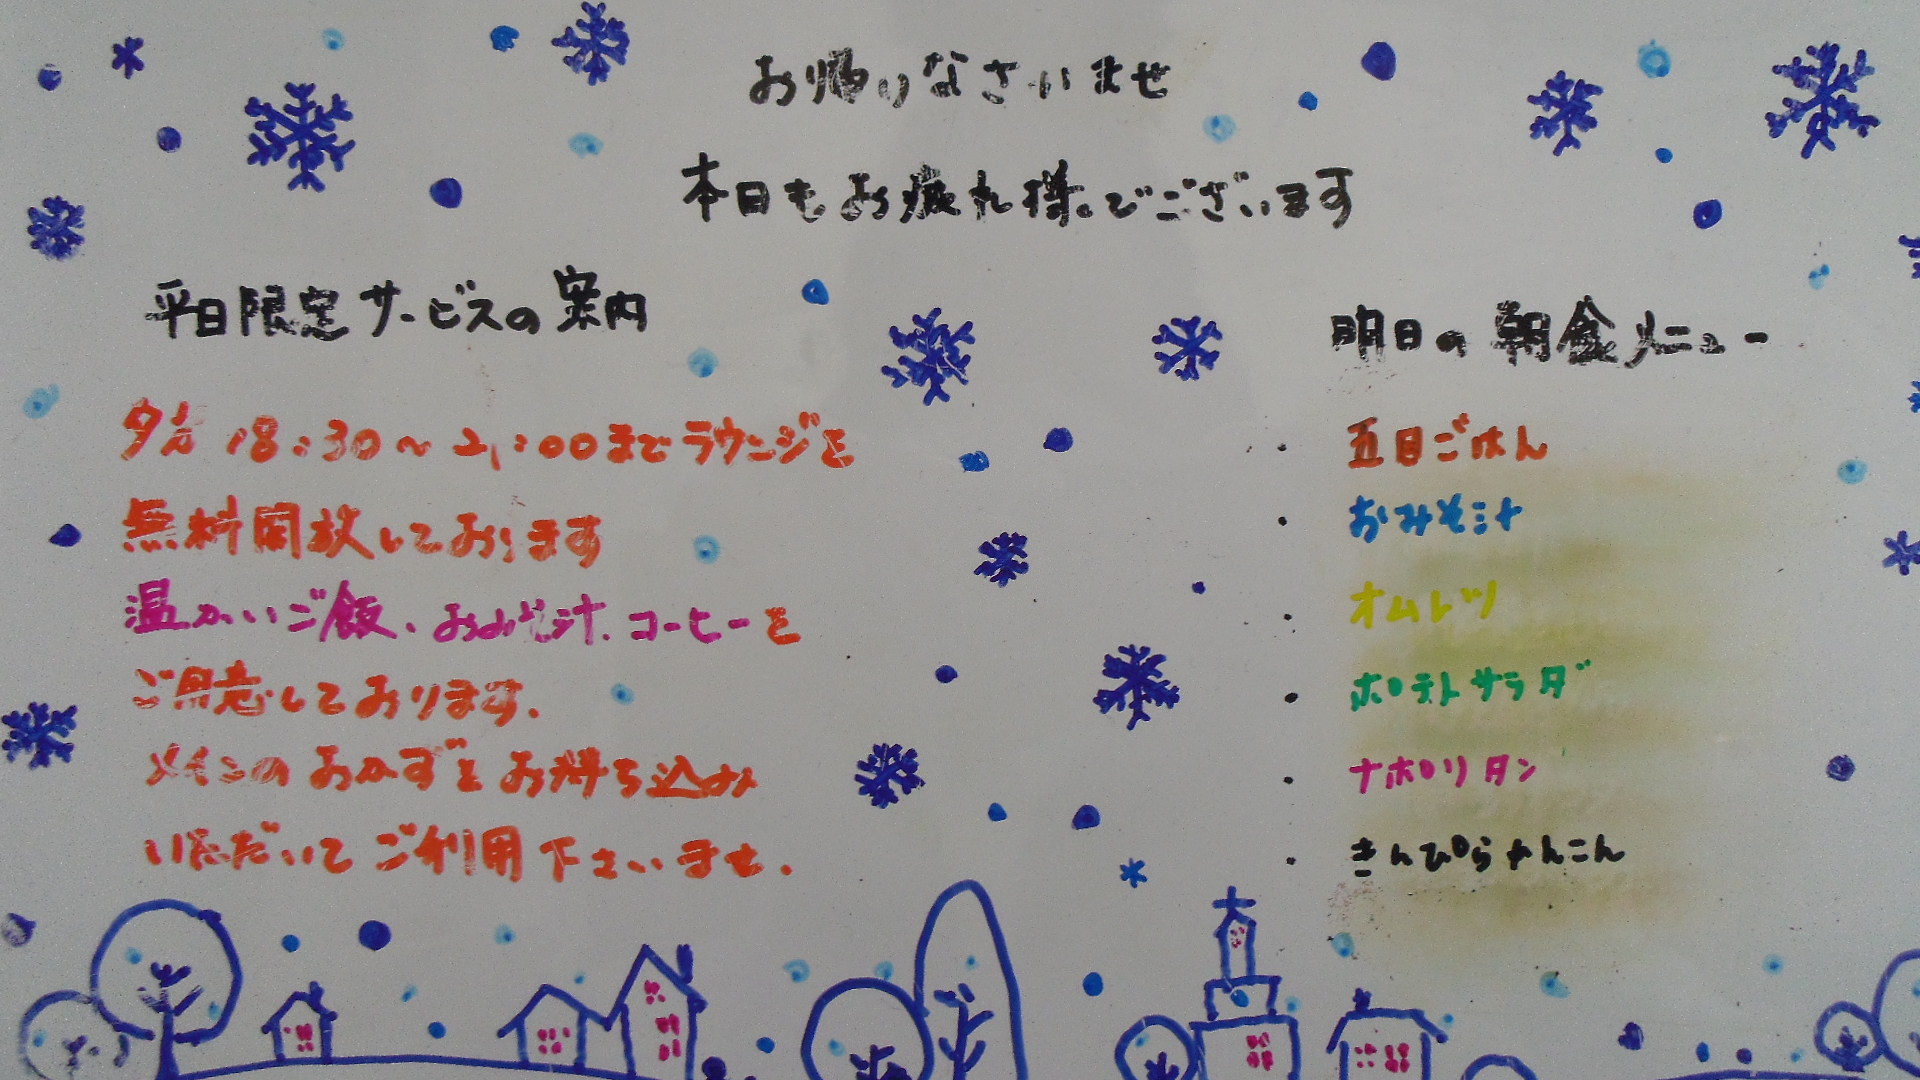 お帰りなさいませ
本日もお疲れ様でございます
平日限定サービスの案内
夕方 18:30～21:00までラウンジを
無料開放しております
温かいご飯、おみそ汁、コーヒーを
ご用意しております.
メインのおかずをお持ち込み
いただいてご利用下さいませ.
明日の朝食メニュー
・五目ごはん
・おみそ汁
・オムレツ
・ポテトサラダ
・ナポリタン
・きんぴられんこん